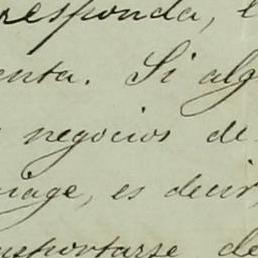 responda, l
enta. Si alg
negocios de
iage, es decir,
nsportarse de